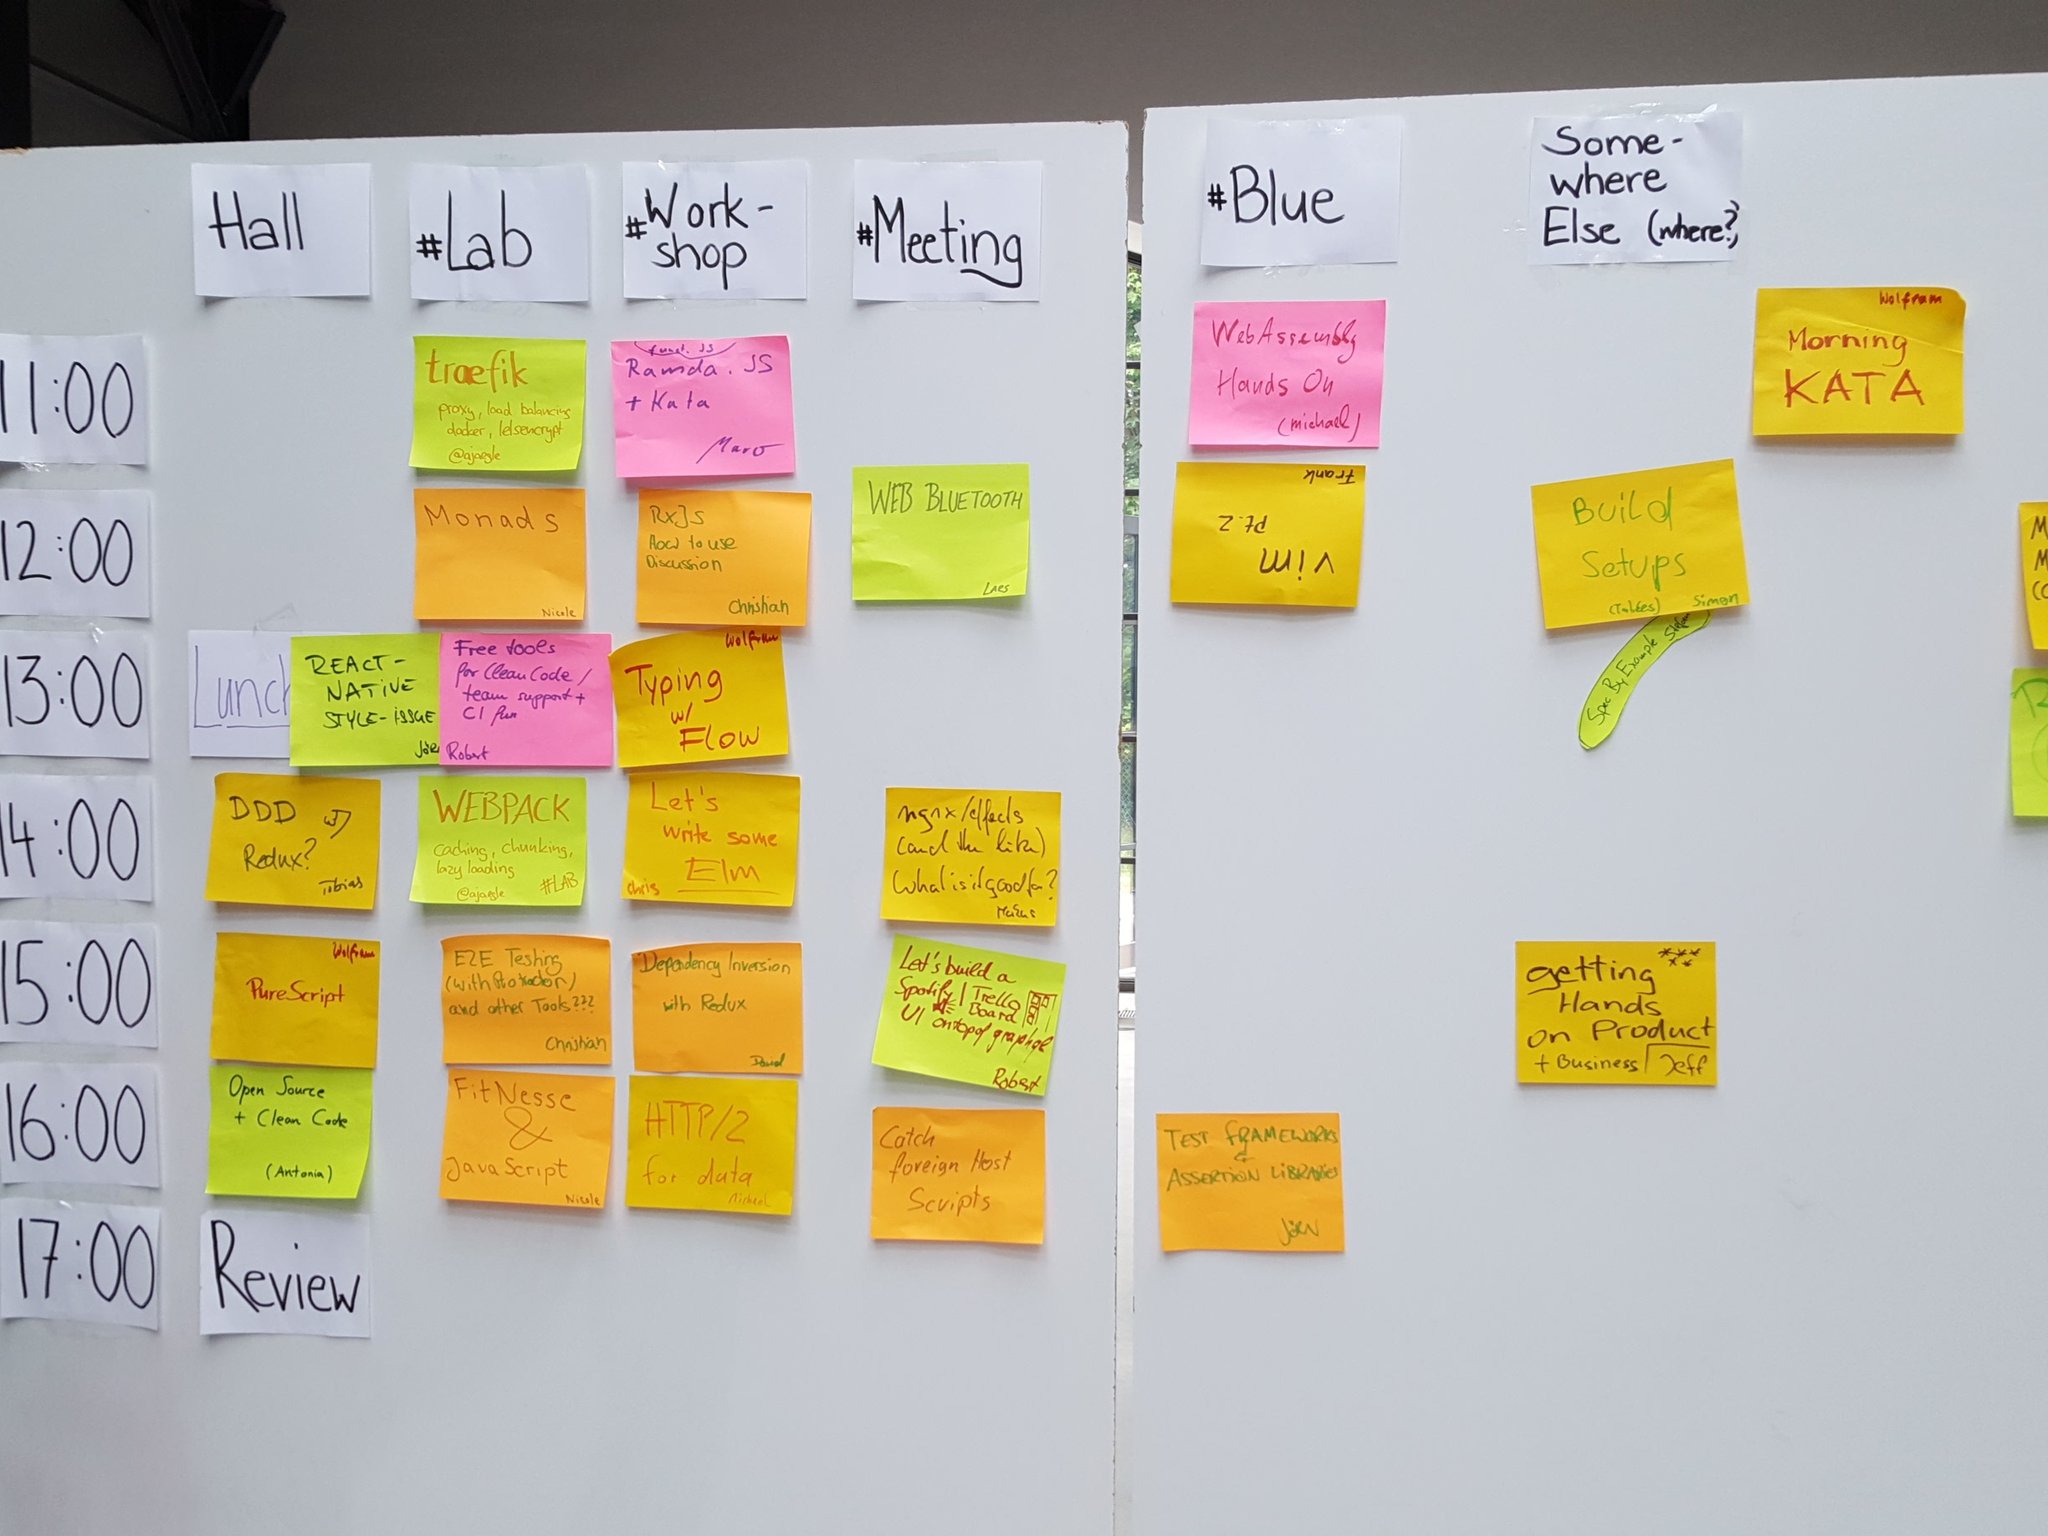 Hall
#Lab
#Work-
shop
#Meeting
#Blue
Some-
where
Else (where?)
11:00
traefik
proxy, load balancing
docker, letsencrypt
@ajaegle
funct. JS
Ramda.JS
+ Kata
Marco
WebAssembly
Hands On
(michael)
Wolfram
Morning
KATA
12:00
Monads
Nicole
RxJS
How to use
Discussion
Christian
WEB BLUETOOTH
Lars
vim
Pt.2
Frank
Build
Setups
(Tables) Simon
Spec By Example
13:00
Lunch
REACT-
NATIVE
STYLE-ISSUE
Jörn
Free tools
for Clean Code/
team support +
CI fun
Robert
Wolfram
Typing
w/
Flow
14:00
DDD w/
Redux?
Tobias
WEBPACK
caching, chunking,
lazy loading
@ajaegle #LAB
Let's
write some
Elm
chris
ngrx/effects
(and the like)
What is it good for?
Markus
15:00
Wolfram
PureScript
E2E Testing
(with Protractor)
and other Tools???
Christian
Dependency Inversion
with Redux
David
Let's build a
Spotify / Trello
Board
UI on top of graphql
Robert
getting
Hands
on Product
+ Business Jeff
16:00
Open Source
+ Clean Code
(Antonia)
FitNesse
&
JavaScript
Nicole
HTTP/2
for data
Michael
Catch
foreign Host
Scripts
TEST FRAMEWORKS
&
ASSERTION LIBRARIES
JÖRN
17:00
Review